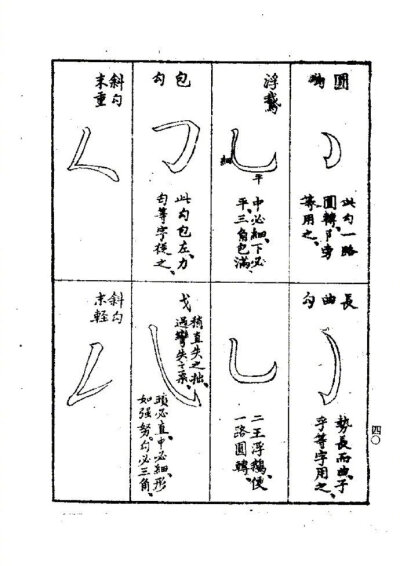 圓
此勾一路
圓轉阝旁
等用之、
浮鵝
細
平
中必細、下必
平三角包滿、
包勾
此勾包左、力
勻等字之、
斜勾
末重
長曲勾
勢長而曲、子
孚等字用之、
二王浮鵝、便
一路圓轉、
戈
稍直失之拙、
過彎失之柔、
頭必直、中必細、形
如强努、勾必三角、
斜勾
末輕
四〇